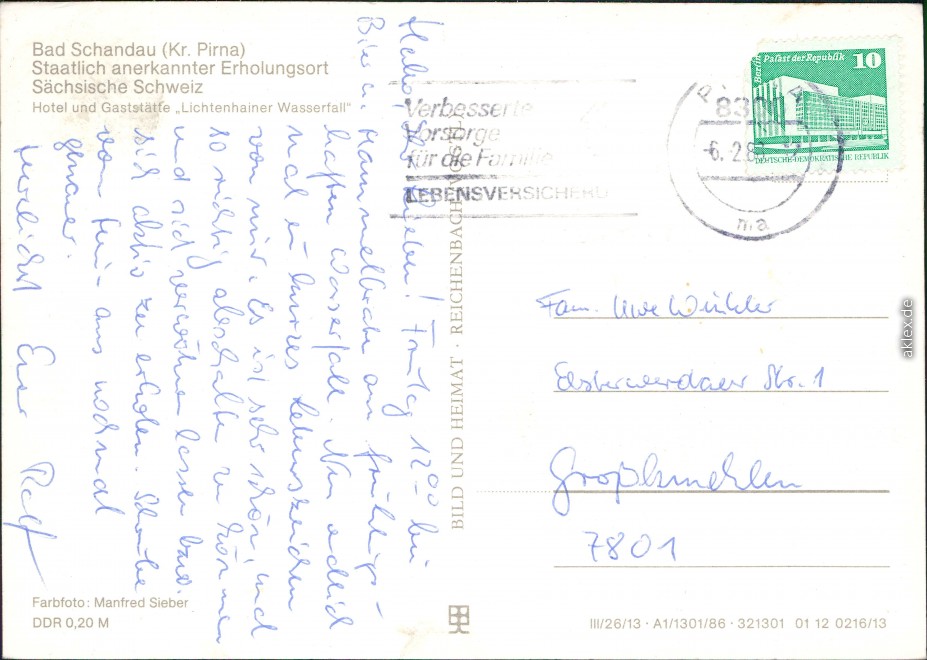 Bad Schandau (Kr. Pirna)
Staatlich anerkannter Erholungsort
Sächsische Schweiz
Hotel und Gaststätte „Lichtenhainer Wasserfall"
Hallo, Ihr Lieben! 12⁰⁰ bei
Bier u. Hammelbraten am frühlings-
haften Wasserfall. Nun endlich
mal ein kurzes Lebenszeichen
von mir. Es ist sehr schön, und
so richtig abschalten zu können
und sich verwöhnen lassen bzw.
sich aktiv zu erholen. Schreibe
von aus nochmal
genauer.
Herzlichst Euer Ralf
Farbfoto: Manfred Sieber
DDR 0,20 M
BILD UND HEIMAT · REICHENBACH
Verbesserte
Vorsorge
für die Familie
LEBENSVERSICHERU
6.-2.8
Berlin Palast der Republik 10
DEUTSCHE DEMOKRATISCHE REPUBLIK
Fam. Uwe Winkler
Elsterwerdaer Str. 1
Großkmehlen
7801
III/26/13 · A1/1301/86 · 321301 01 12 0216/13
aklex.de